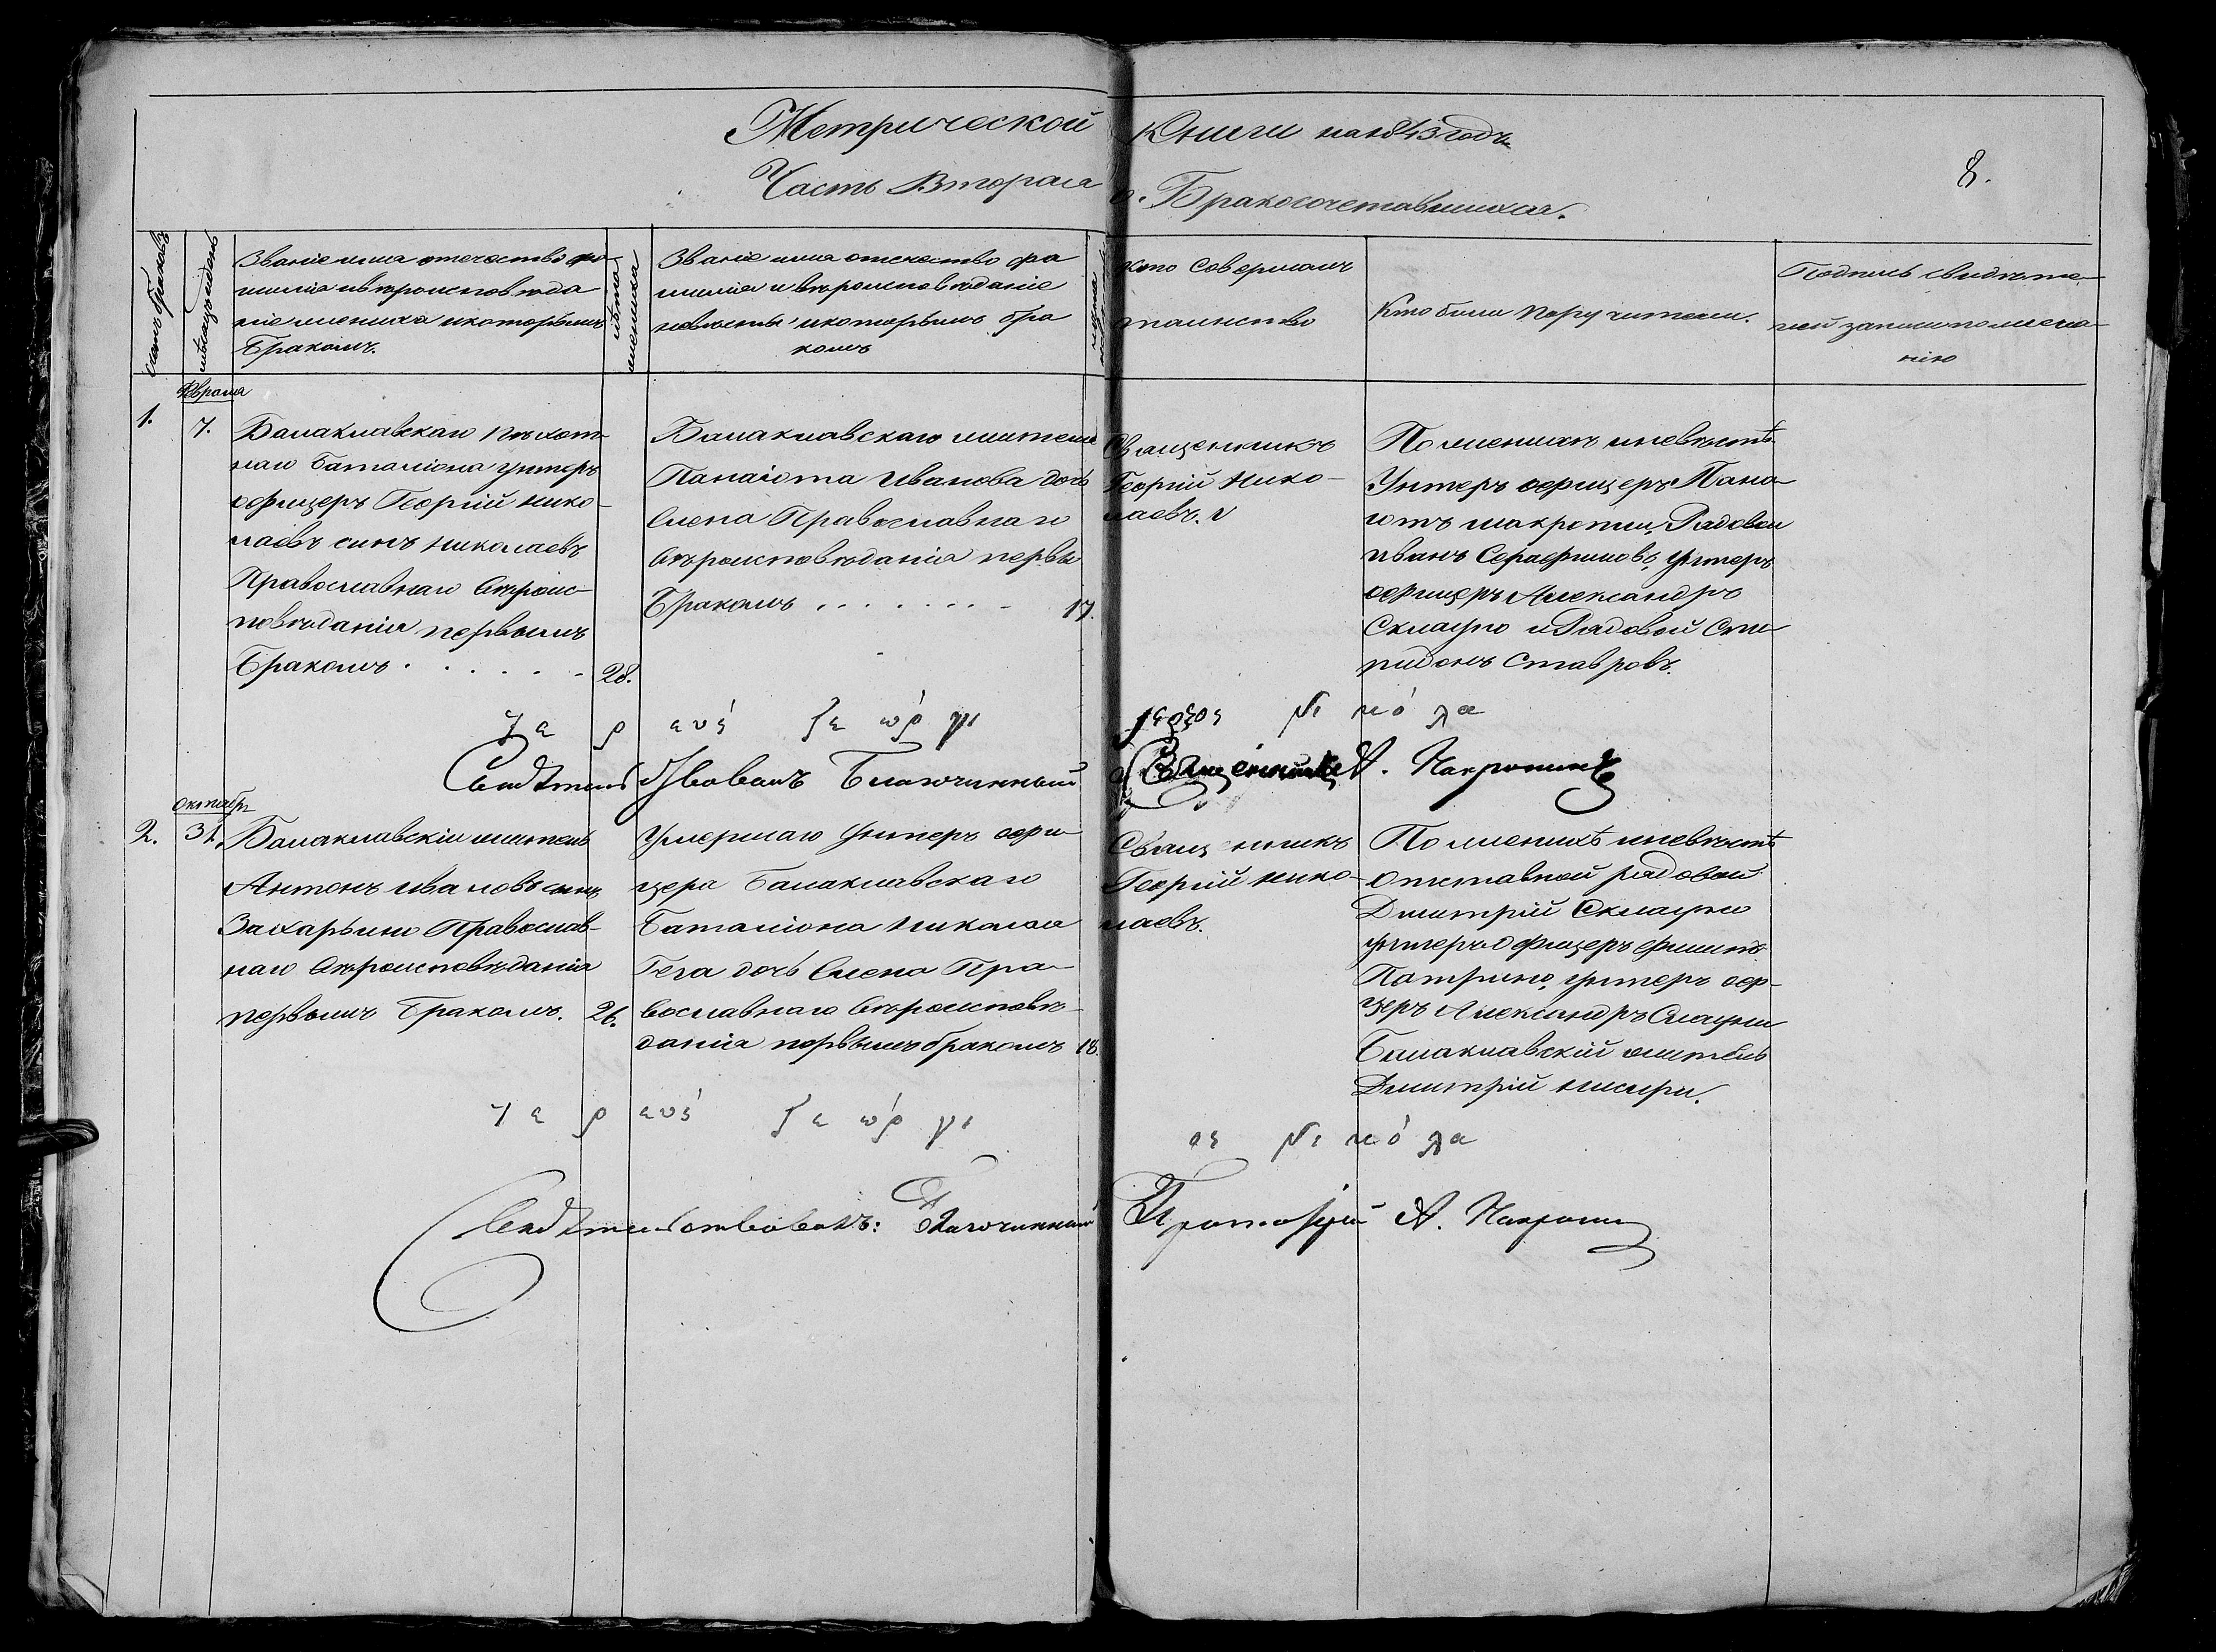 Метрической Книги на 1843 годъ
Часть Вторая о Бракосочетавшихся.
8.
счетъ браковъ
мѣсяцъ и день
Званіе имя отечество фа-
милія и вѣроисповѣда
ніе жениха и которымъ
Бракомъ.
лѣта
жениха
Званіе имя отечество фа
милія и вѣроисповѣданіе
невѣсты и которымъ бра
комъ
лѣта
кто Совершалъ
таинство
Кто были Поручители.
Подпись свидѣте-
лей записи по жела-
нію
1.
Февраля
7.
Балаклавскаго пѣхот-
наго Баталіона унтеръ
офицеръ Георгій Нико-
лаевъ сынъ Николаевъ
Православнаго Вѣроис-
повѣданія первымъ
Бракомъ . . . . . -
28.
Балаклавскаго жителя
Панаіота Иванова дочь
Елена Православнаго
Вѣроисповѣданія первы
Бракомъ . . . . . . . -
17.
Священникъ
Георгій Нико-
лаевъ.
По женихѣ и невѣстѣ
Унтеръ офицеръ Пана-
іотъ Макропии, Рядовои
Иванъ Серафимовъ, унтеръ
офицеръ Александръ
Склауно и Рядовой Спи-
ридонъ Ставровъ.
ἱ ε ρ εύς γε ώρ γι ος Νι κό λα
Свидѣтельствовалъ Благочинный Священникъ А. Накропинъ
2.
Октября
31.
Балаклавскіи житель
Антонъ Ивановъ сынъ
Захарьино Православ-
наго Вѣроисповѣданія
первымъ Бракомъ.
26.
Умершаго Унтеръ офи-
цера Балаклавскаго
Баталіона Николая
Гега дочь Елена Пра-
вославнаго Вѣроисповѣ-
данія первымъ бракомъ
18.
Священникъ
Георгій Нико-
лаевъ.
По женихѣ и невѣстѣ
Отставной рядовой
Димитрій Склауно
унтеръ Офицеръ Филипъ
Патрино, унтеръ оф-
церъ Александръ Склауни
Балаклавскій житель
Димитрій
ἱ ε ρ εύς γε ώρ γι ος Νι κό λα
Свидѣтельствовалъ: Благочинный Протоіерей А. Накропин